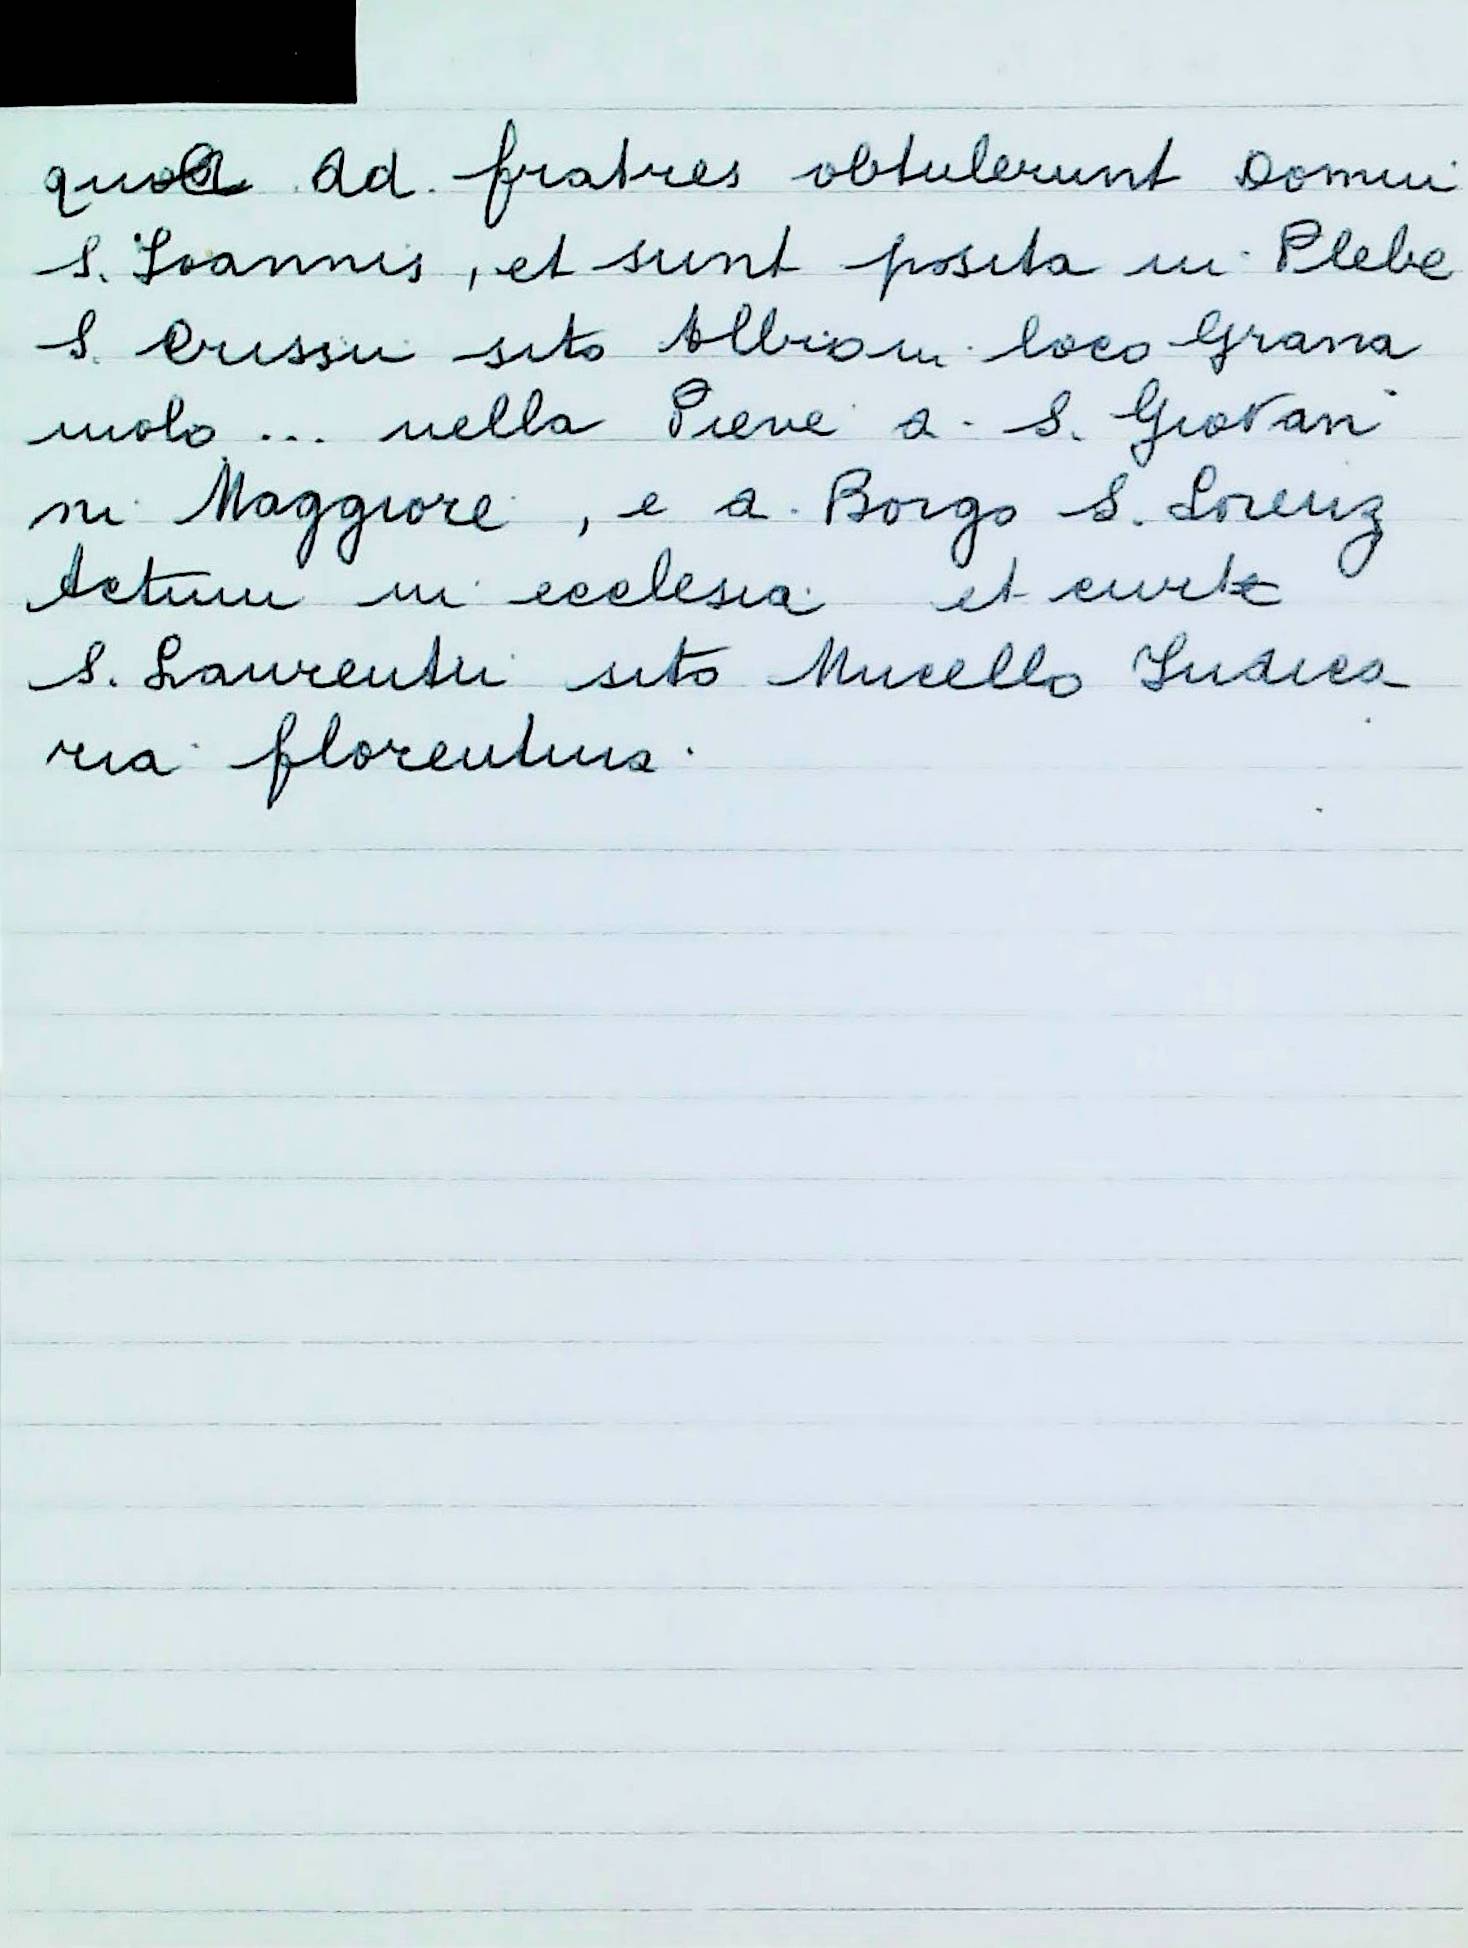 quod ad fratres obtulerunt Domui
S. Ioannis, et sunt posita in Plebe
S. Cressii sito Albioni loco Grana
iolo ... nella Pieve a S. Giovan
ni Maggiore, e a Borgo S. Lorenz
Actum in ecclesia et curte
S. Laurentii sito Mucello Iudica
ria florentina.